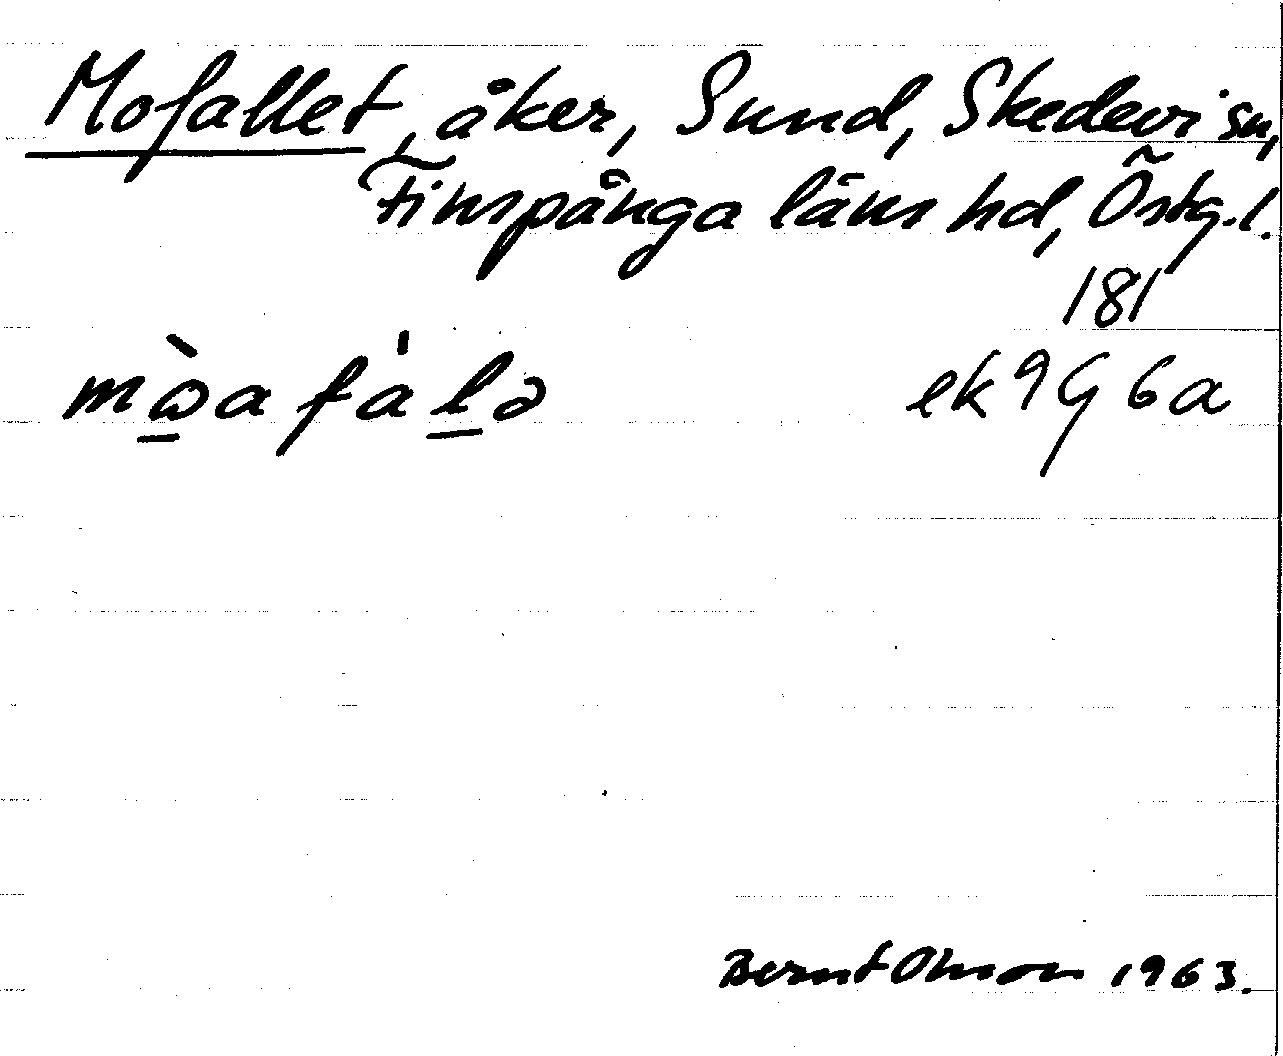 Mofallet, åker, Sund, Skedevi sn,
Finspånga läns hd, Östg.l.
181
mὼ̱a fa̍ḻə ek 9G 6a
Bernt Olsson 1963.